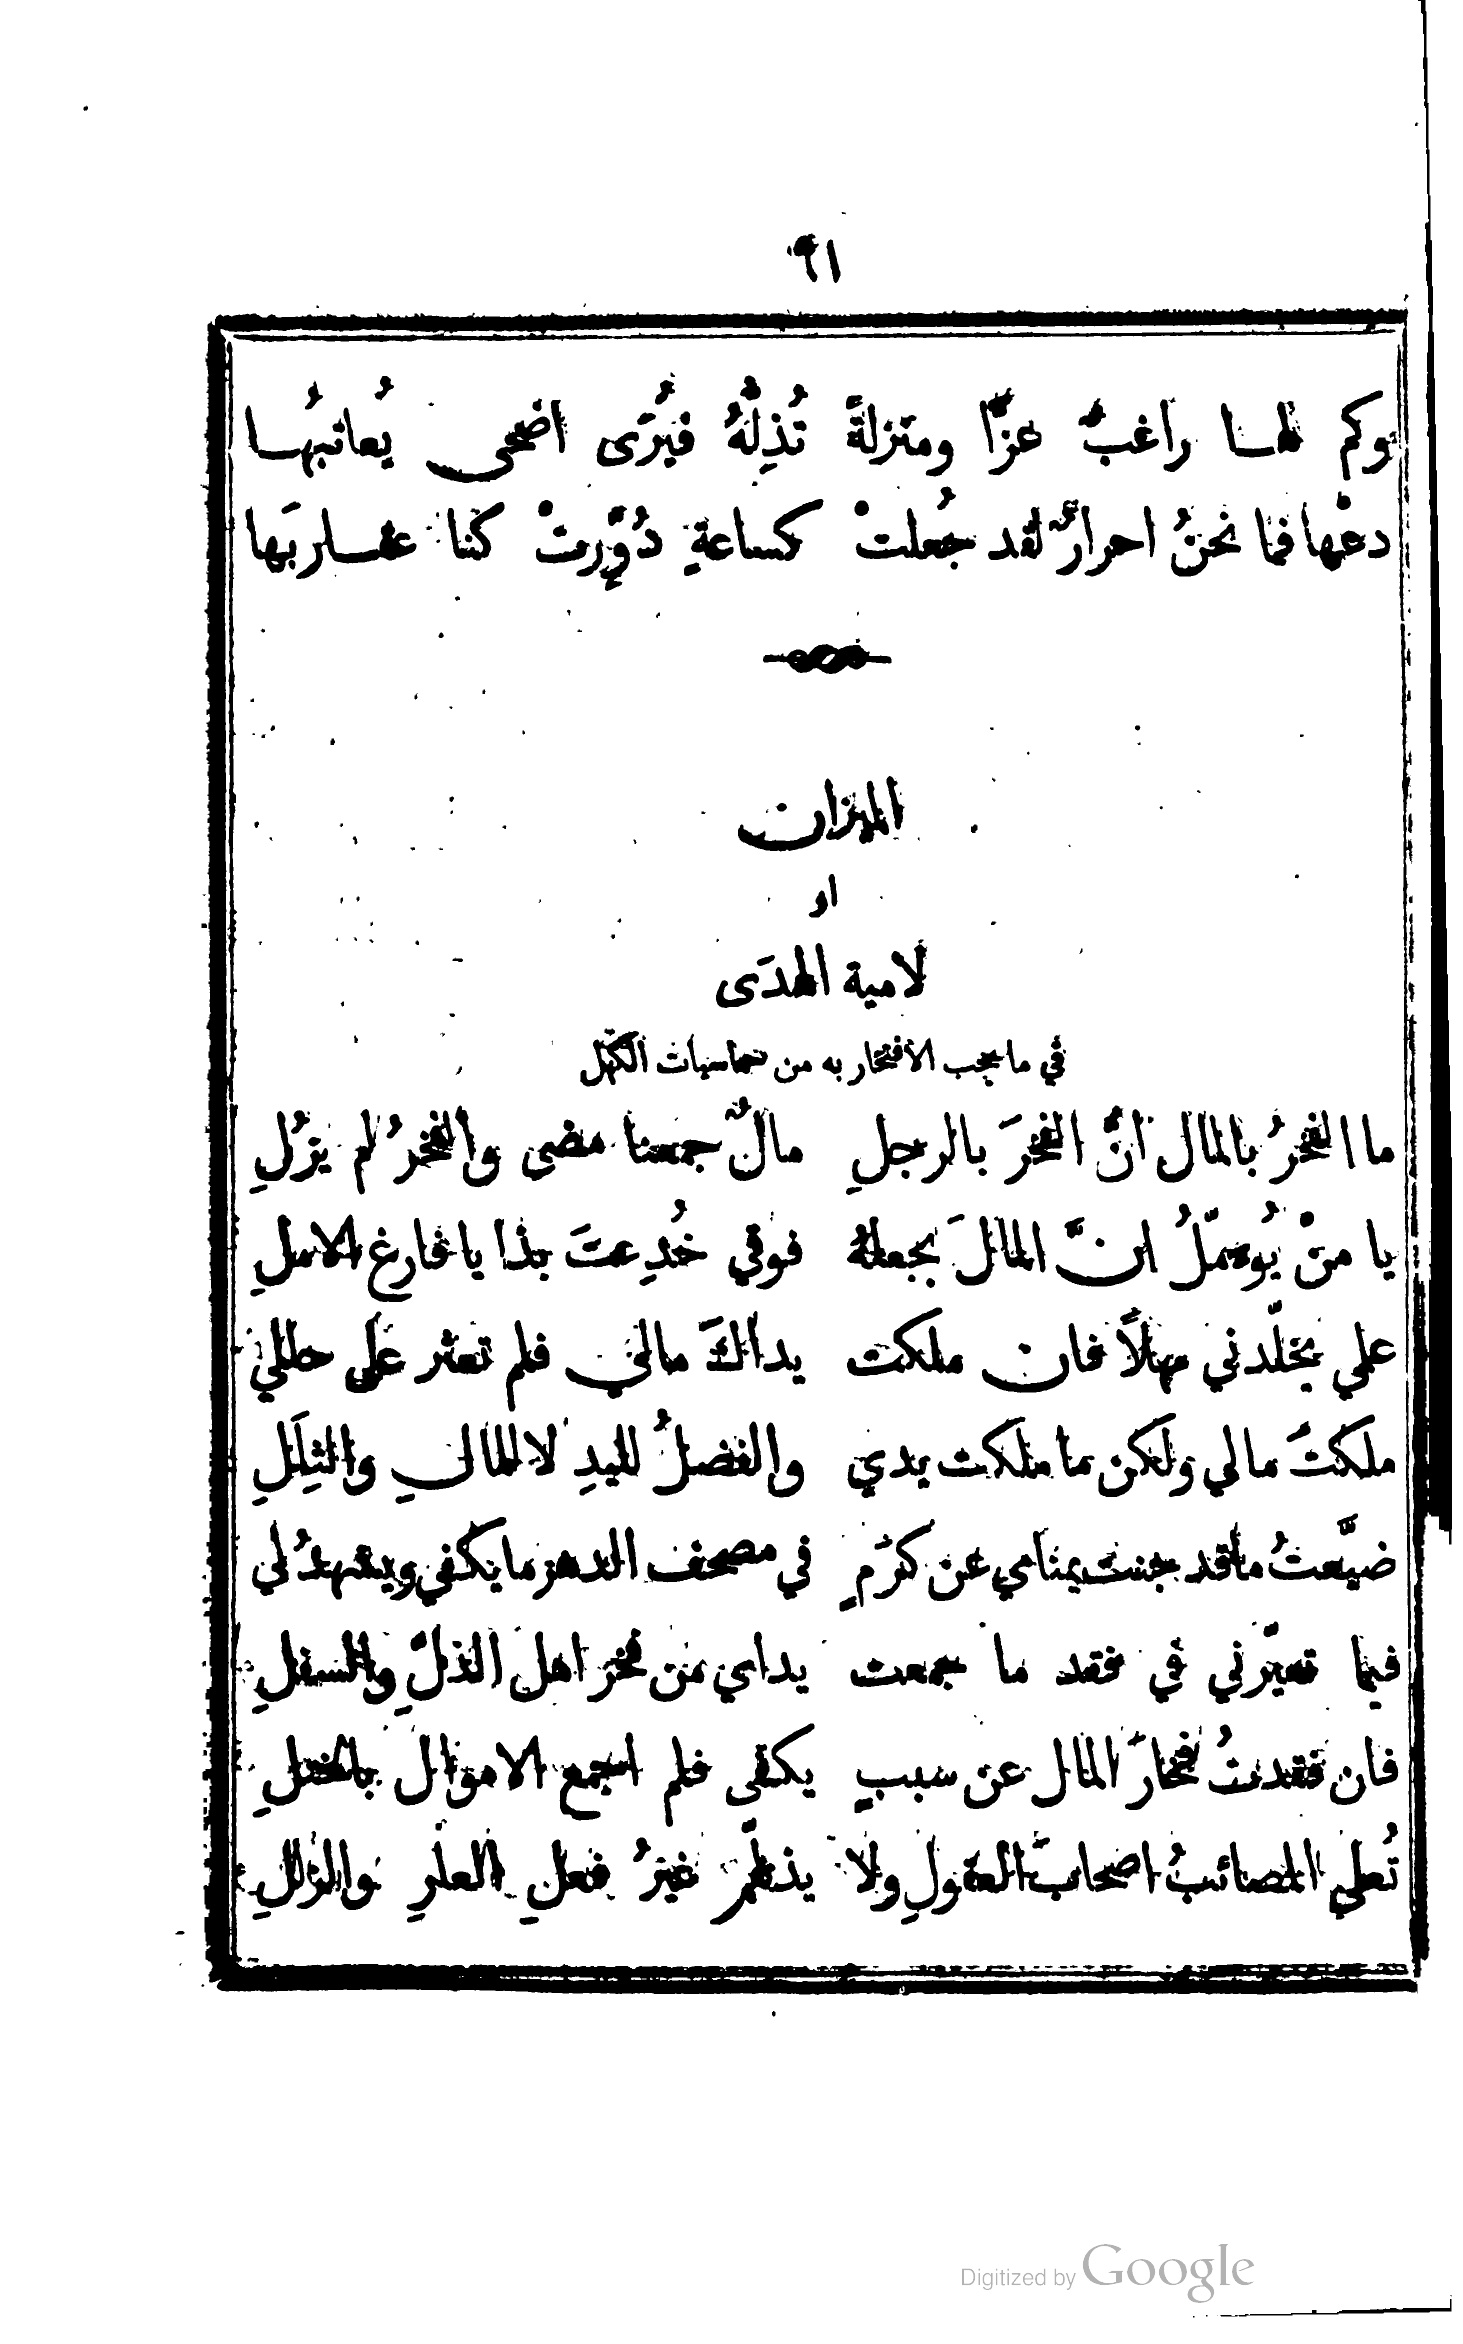 ٩١
وكم لها راغبٌ عزًّا ومنزلةً تُذِلُّهُ فيُرَى اضحى يُعاتبُها
دعْها فما نحنُ احرارٌ لقد جُعلتْ كساعةٍ دُوِّرتْ كنا عقاربَها
الميزان
او
لامية الهدَى
في ما يجب الافتخار به من حماسيات الكهل
ما الفخرُ بالمال انَّ الفخرَ بالرجلِ مالٌ جمعنا مضى والفخرُ لم يزُلِ
يا منْ يُومّلُ انَّ المالَ يجعلهُ فوقي خُدِعتَ بذا يا فارغ الاملِ
علي يخلّدني مهلاً فان ملكت يداكَ مالي فلم تعثر على حللي
ملكتَ مالي ولكن ما ملكت يدي والفضلُ لليدِ لا للمالِ والثِلَلِ
ضيَّعتُ ما قد جنت يمناي عن كرَمٍ في مصحف الدهر ما يكفي ويشهدُ لي
فيما تعيّرني في فقد ما جمعت يداي من فخر اهل الذلّ والسفلِ
فان فقدتُ فخارَ المال عن سببٍ يكفى فلم اجمع الاموال بالبخلِ
تُعلي المصائبُ اصحابَ العقولِ ولا يذلهم غيرُ فعلِ العارِ والزللِ
Digitized by Google